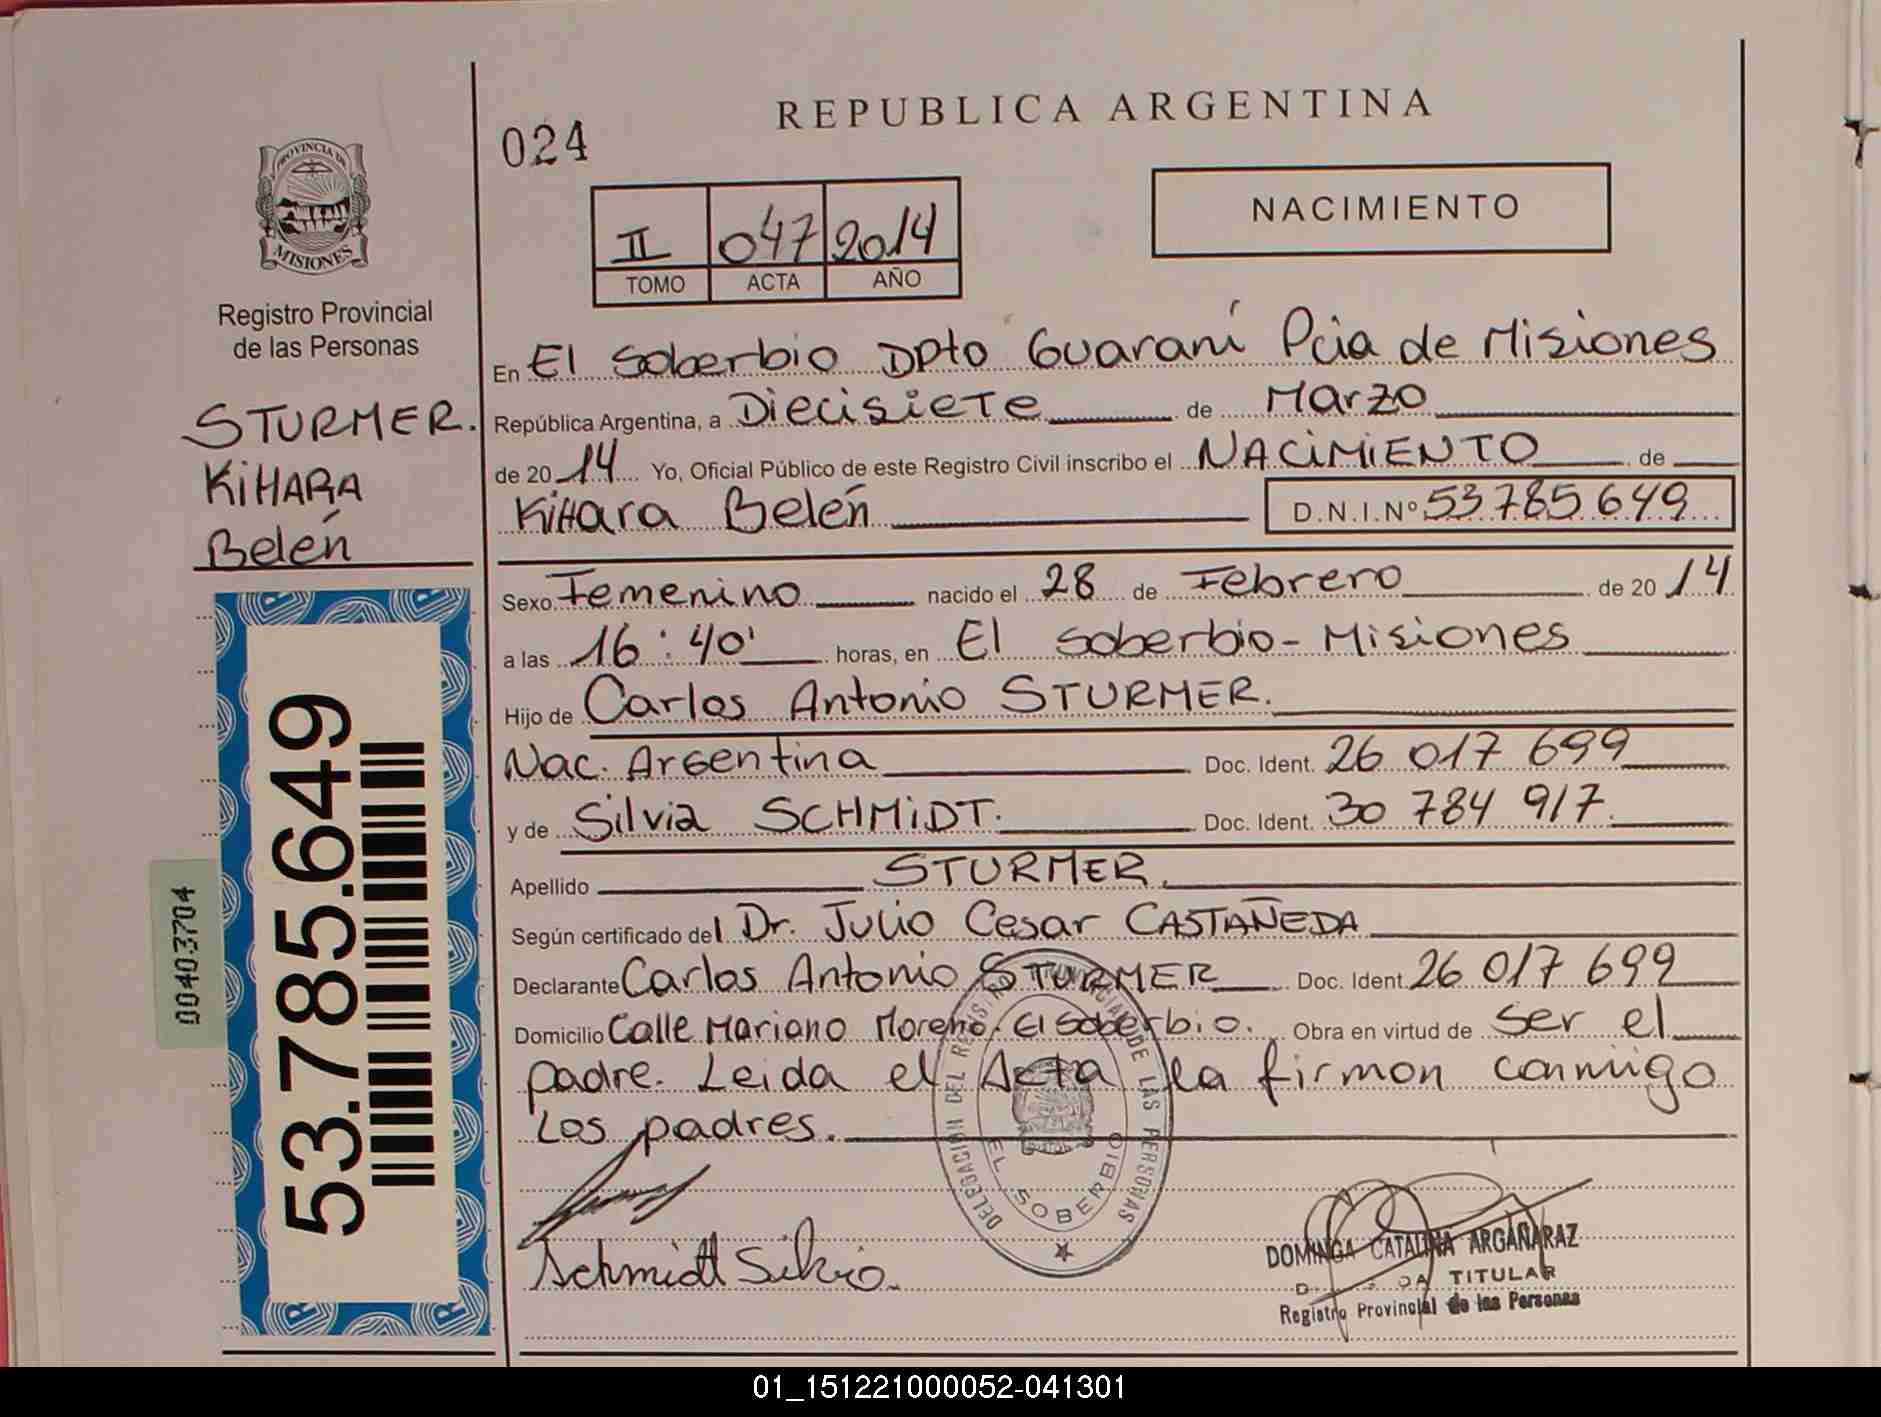 REPUBLICA ARGENTINA
024
NACIMIENTO
II 047 2014
TOMO ACTA AÑO
PROVINCIA DE
MISIONES
Registro Provincial
de las Personas
STURMER.
KiHARA
Belén
53.785.649
00403704
En El Soberbio DPto Guaraní Pcia de Misiones
República Argentina, a Diecisiete de Marzo
de 20 14 Yo, Oficial Público de este Registro Civil inscribo el NACiMiENTO de
KiHara Belén D.N.I.Nº 53 785 649
Sexo Femenino nacido el 28 de Febrero de 20 14
a las 16:40' horas, en El Soberbio - Misiones
Hijo de Carlos Antonio STURMER.
Nac. Argentina Doc. Ident. 26 017 699
y de Silvia SCHMiDT. Doc. Ident. 30 784 917.
Apellido STURMER.
Según certificado del Dr. Julio Cesar CASTAÑEDA
Declarante Carlos Antonio STURMER Doc. Ident. 26 017 699
Domicilio Calle Mariano Moreno. El Soberbio. Obra en virtud de Ser el
padre. Leida el Acta la firman conmigo
Los padres.
DELEGACION DEL REGISTRO PROVINCIAL DE LAS PERSONAS
EL SOBERBIO
Schmidt Silvia.
DOMINGA CATALINA ARGAÑARAZ
TITULAR
Registro Provincial de las Personas
01_151221000052-041301